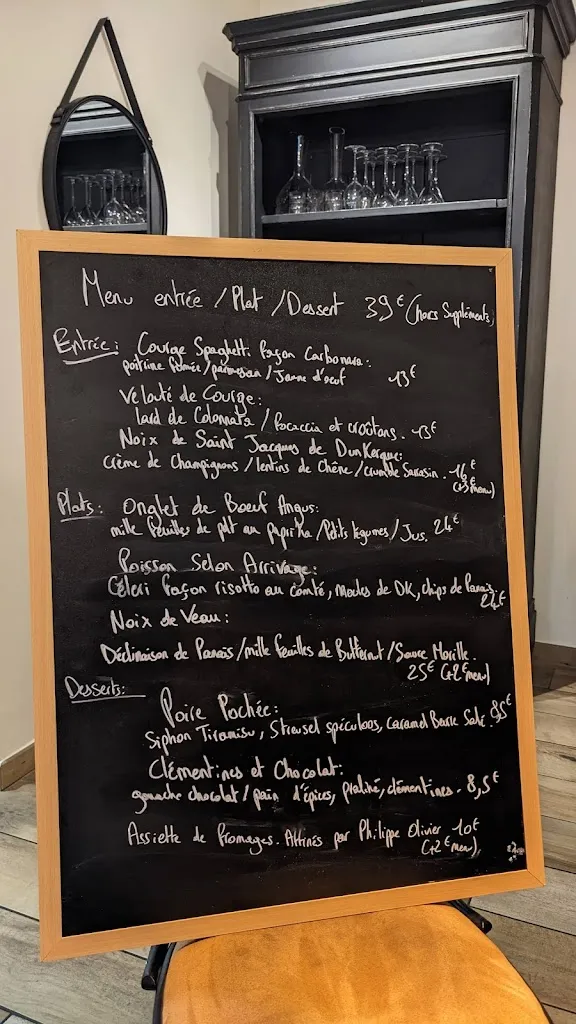 Menu entrée / Plat / Dessert 39€ (hors Suppléments)
Entrée: Courge Spaghetti façon Carbonara:
poitrine fumée / parmesan / Jaune d'oeuf 13€
Velouté de Courge:
lard de Colonnata / Focaccia et croûtons. 13€
Noix de Saint Jacques de Dunkerque:
crème de Champignons / lentins de Chêne / crumble Sarasin. 16€
(+3€ menu)
Plats: Onglet de Boeuf Angus:
mille feuilles de pdt au paprika / Petits légumes / Jus. 24€
Poisson Selon Arrivage:
Céleri façon risotto au comté, moules de DK, chips de Panais
24€
Noix de Veau:
Déclinaison de Panais / mille feuilles de Butternut / Sauce Morille.
25€ (+2€ menu)
Desserts:
Poire Pochée:
Siphon Tiramisu, Streusel spéculoos, Caramel Beurre Salé.
Clémentines et Chocolat:
ganache chocolat / pain d'épices, praliné, clémentines. 8,5€
Assiette de fromages. Affinés par Philippe Olivier 10€
(+2€ menu)